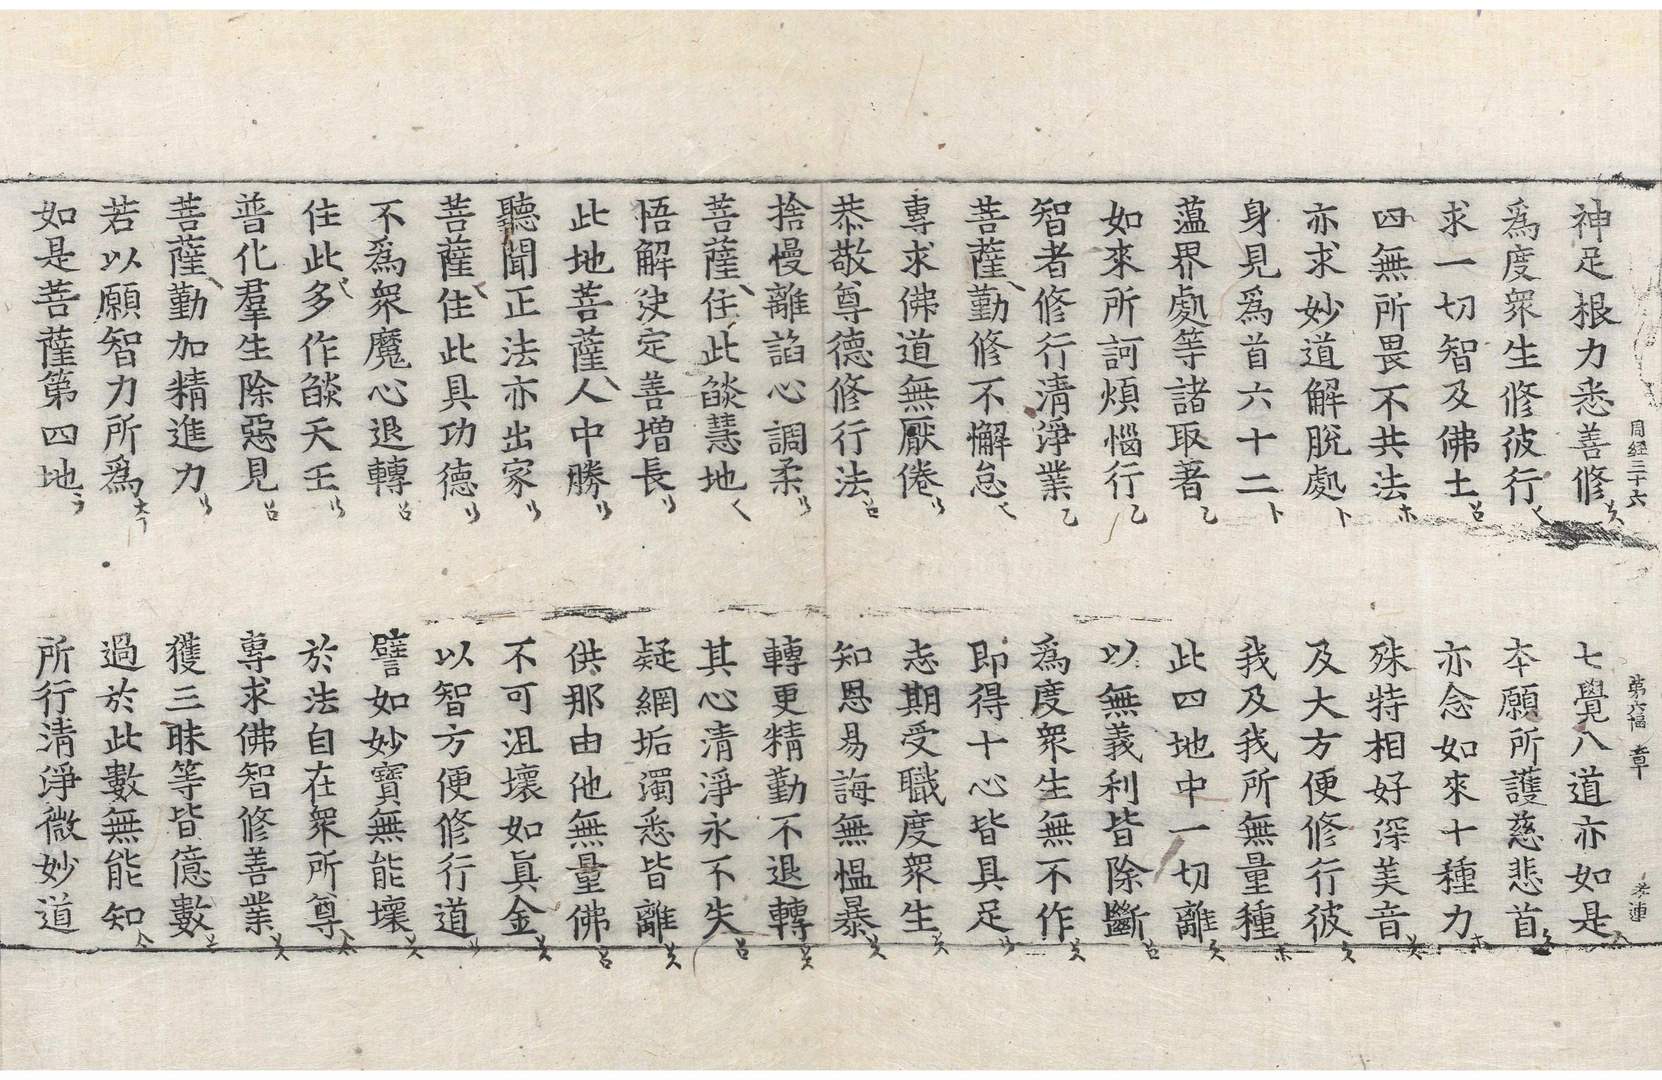 周經三十六 第六幅 章
神足根力悉善修 七覺八道亦如是
爲度衆生修彼行 本願所護慈悲首
求一切智及佛土 亦念如來十種力
四無所畏不共法 殊特相好深美音
亦求妙道解脫處 及大方便修行彼
身見爲首六十二 我及我所無量種
薀界處等諸取著 此四地中一切離
如來所訶煩惱行 以無義利皆除斷
智者修行清淨業 爲度衆生無不作
菩薩勤修不懈怠 即得十心皆具足
專求佛道無厭倦 志期受職度衆生
恭敬尊德修行法 知恩易誨無愠暴
捨慢離諂心調柔 轉更精勤不退轉
菩薩住此燄慧地 其心清淨永不失
悟解决定善增長 疑網垢濁悉皆離
此地菩薩人中勝 供那由他無量佛
聽聞正法亦出家 不可沮壞如眞金
菩薩住此具功德 以智方便修行道
不爲衆魔心退轉 譬如妙寶無能壞
住此多作燄天王 於法自在衆所尊
普化羣生除惡見 專求佛智修善業
菩薩勤加精進力 獲三昧等皆億數
若以願智力所爲 過於此數無能知
如是菩薩第四地 所行清淨微妙道